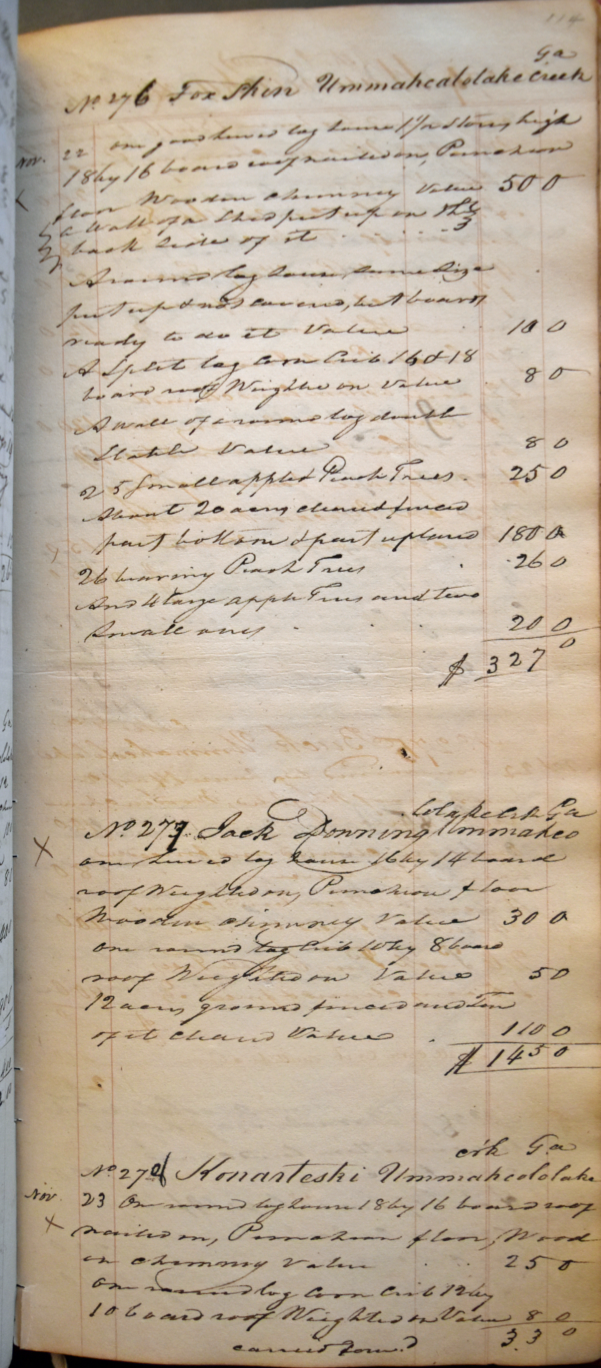 114
Ga
No 276 Fox Skin Ummahcalolake Creek
Nov. 22 one good hewed log house 1½ Storey high
18 by 16 board roof nailed on, Puncheon
floor Wooden chimney Value 50 0
& a Wall of a Shed put up on the
back Side of it
A round log house same Size
put up & not covered, but boards
ready to do it Value 10 0
A Split log Corn Crib 16 & 18
board roof Weighted on Value 8 0
A wall of a round log double
Stable Value 8 0
25 Small apple & Peach Trees 25 0
About 20 acres cleared & fenced
part bottom & part upland 180 0
26 bearing Peach Trees 26 0
And 4 large apple Trees and two
Small ones 20 0
$ 327 0
lolake Crk Ga
X No 277 Jack Downing Ummahco
one hewed log house 16 by 14 board
roof Weighted on, Puncheon floor
Wooden chimney Value 30 0
one round log Crib 10 by 8 board
roof Weighted on Value 5 0
12 acres ground fenced and Ten
of it cleared Value 110 0
$ 145 0
crk Ga
No 278 Konarteski Ummahcololake
Nov. 23 One round log house 18 by 16 board roof
X nailed on, Puncheon floor, Wood
en chimney Value 25 0
one round log Corn Crib 12 by
10 board roof Weighted on Value 8 0
carried forwd 33 0